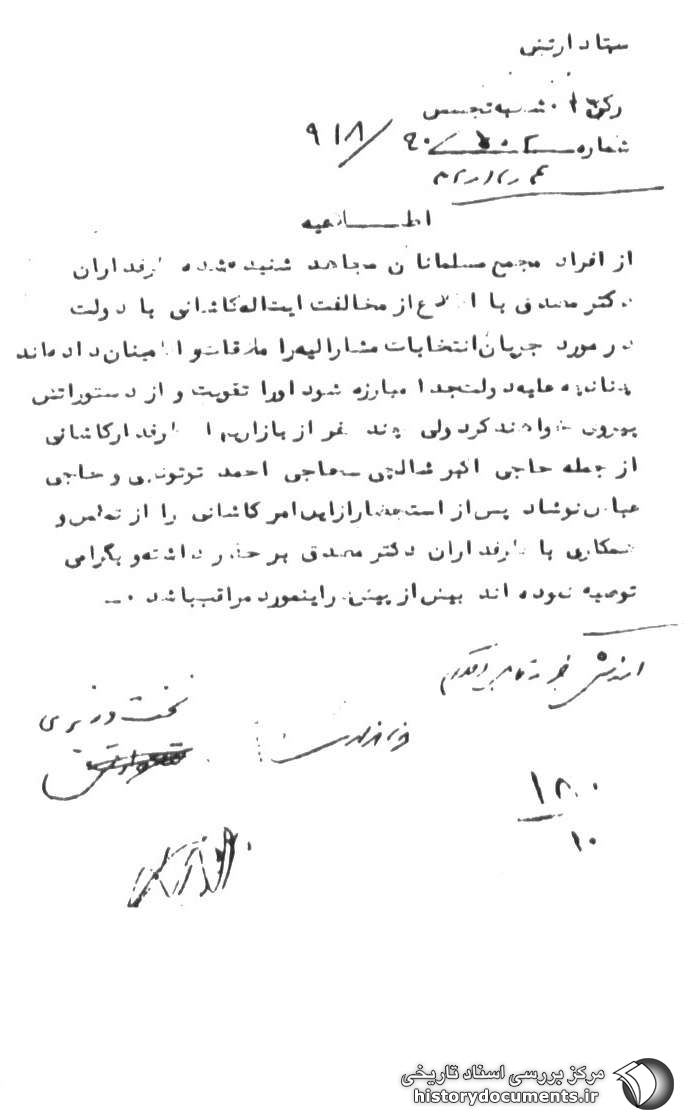 ستاد ارتش
رکن ۲ شعبه تجسس
شماره ۹۱۸
اطلاعیه
از افراد مجمع مسلمانان مجاهد شنیده شده طرفداران
دکتر مصدق با اطلاع از مخالفت ایت‌اله کاشانی با دولت
در مورد جریان انتخابات مشارالیه را ملاقات و اطمینان داده‌اند
چنانچه علیه دولت جدا مبارزه شود او را تقویت و از دستوراتش
پیروی خواهند کرد ولی چند نفر از بازاریهای طرفدار کاشانی
از جمله حاجی اکبر شالچی حاجی احمد توتونچی و حاجی
عباس نوشاد پس از استحضار از این امر کاشانی را از تماس و
همکاری با طرفداران دکتر مصدق بر حذر داشته و بگرامی
توصیه نموده اند بیش از پیش در اینمورد مراقب باشد
نخست وزیری
۱۰
مرکز بررسی اسناد تاریخی
historydocuments.ir